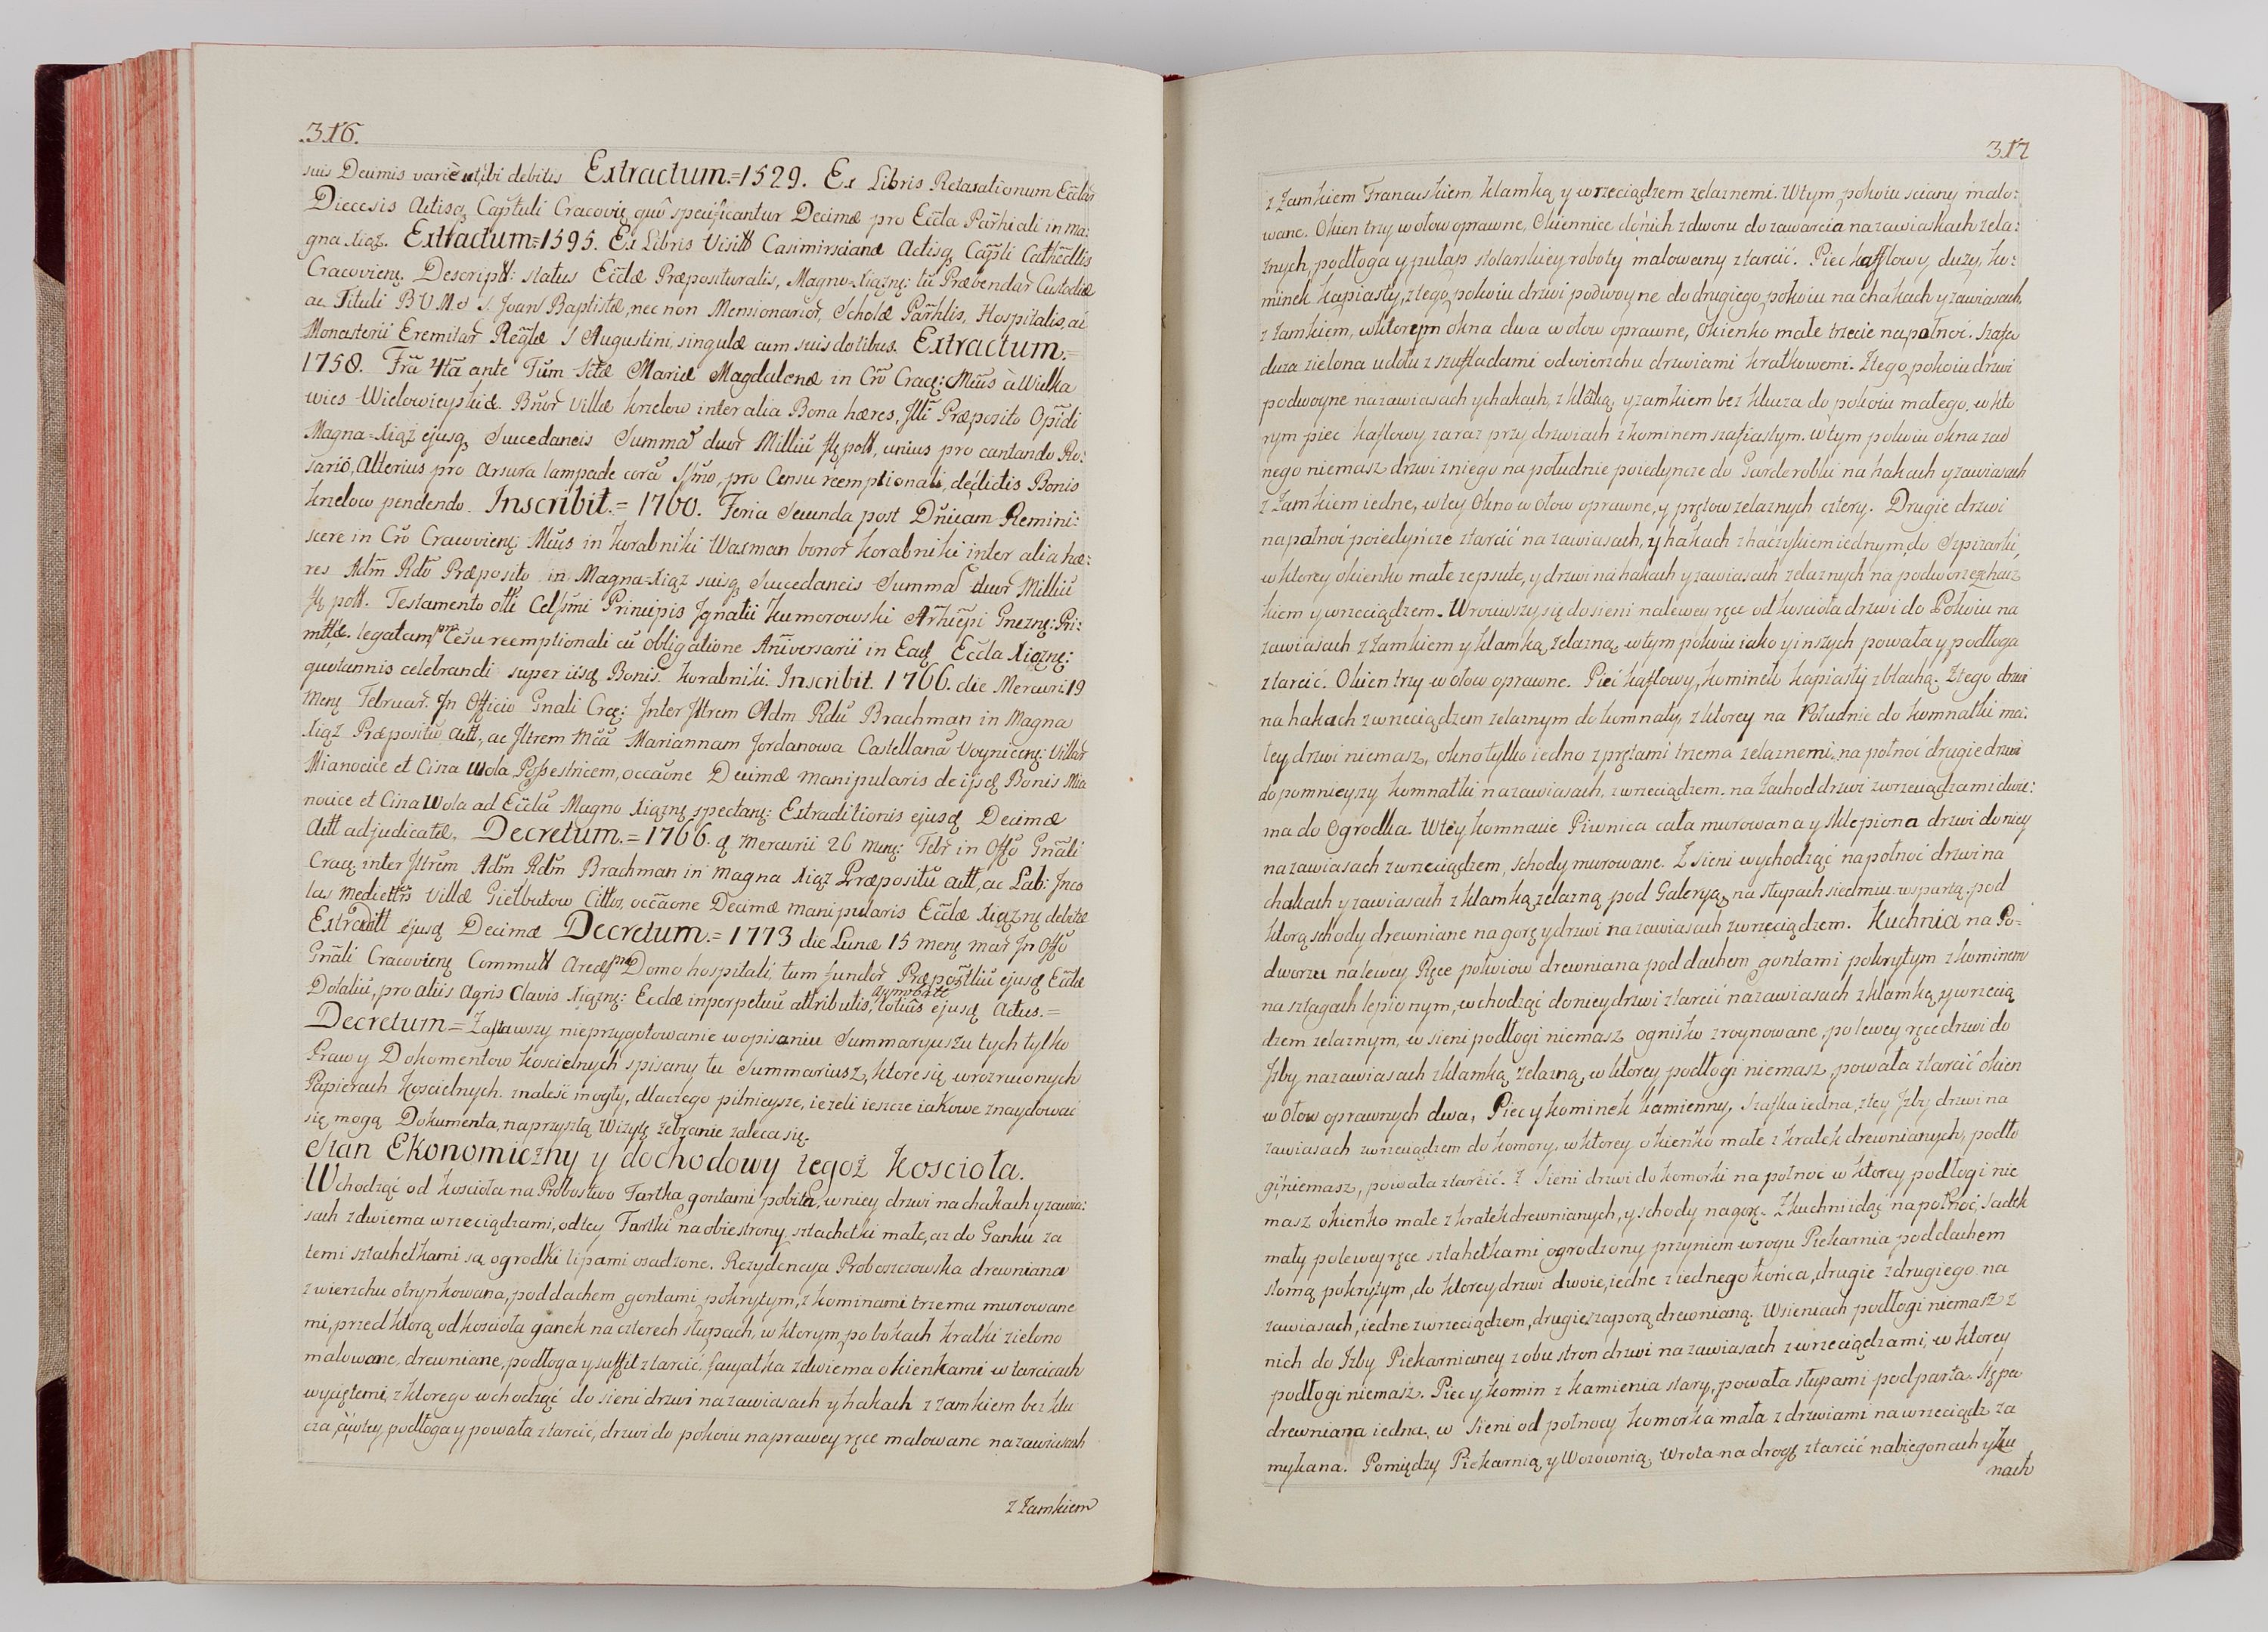 .316.
suis Decimis varie ut, ibi debitis Extractum.=1529. Ex Libris Retaxationum Eccłar
Diecesis Actisq Captuli Cracovię quo specificantur Decimæ pro Eccla Parhiali in ma:
gna Xiąż. Extractum=1595. Ex Libris Visitt Casimirscianæ Actisq Capli Cathedlis
Cracovienę. Descriptt: status Eccłæ Præposituralis, Magno-Xiąznę: tu Præbendar Custodiæ
ac Tituli B V M et S. Joan Baptistæ, nec non Mensionarior, Scholæ Parhlis, Hospitalis, ac
Monasterii Eremitar Reglæ S Augustini, singulæ cum suis dotibus. Extractum.=
1758. Fra 4ta ante Fum Sctæ Mariæ Magdalenæ in Cro Cracę: Mcus à Wielka
wies Wielowieyski &. Bnor Villæ Krzelow inter alia Bona hæres, Illi Præposito Opidi
Magna-Xiąż ejusq Succedaneis Summa duor Milliu fł pott, unius pro cantando Ro:
sario, Alterius pro Arsura lampade cora Ssmo, pro Censu reemptionali, de dictis Bonis
Krzelow pendendo. Inscribit.=1760. Feria Secunda post Dnicam Remini:
scere in Cro Cracovienę Mcus in Korabniki Waxman bonor Korabniki inter alia hæ:
res Adm Rdo Præposito in Magna Xiąz suisq Succedaneis Summa duor Milliu
fł pott. Testamento olli Celssmi Principis Jgnatii Kumorowski Arhiepi Gnezno: Pri:
mttæ. legatam pro Cesu reemptionali cu obligatione Aniversarii in Eaq Eccla Xiąznę:
quotannis celebrandi super iisq Bonis. Korabniki. Inscribit. 1766. die Mercurii 19
Menę Februar. Jn Officio Gnali Crcę: Jnter Jltrem Adm Rdu Brachman in Magna
Xiąż Præpositu Actt, ac Jltrem Mca Mariannam Jordanowa Castellana Voynicenę: Villar
Mianocice et Cisza Wola Possestricem, occaone Decimæ manipularis de ijsq Bonis Mia
nocice et Cisza Wola ad Eccla Magno Xiąznę spectanę: Extraditionis ejusq Decimæ
Actt adjudicatæ. Decretum.=1766. d Mercurii 26 menę: Febr in Offo Gnali
Cracę inter Jltrem Adm Rdm Brachman in Magna Xiąż Præpositu Actt, ac Lab: Jnco
las medietts Villæ Gielbutow Cittos, occaone Decimæ manipularis Eccłæ Xiąznę debitæ
Extraditt ejusq Decimæ Decretum.=1773 die Lunæ 15 menę mar Jn Offo
Gnali Cracovienę Commutt Areæ pro Domo hospitali, tum fundor Præpostliu ejusq Ecclæ
Dotaliu, pro aliis Agris Clavis Xiąznę: Ecclæ inperpetuu attributis, Aprobatæ totius ejusq Actus.=
Decretum=Zastawszy nieprzygotowanie w opisaniu Summaryuszu tych tylko
Praw y Dokomentow koscielnych spisany tu Summariusz, ktore się w rozrzuconych
Papierach Koscielnych. znaleść mogły, dla czego pilnieysze, ieżeli ieszcze iakowe znaydować
się mogą Dokumenta, na przyszłą Wizytę zebranie zaleca się.
Stan Ekonomiczny y dochodowy tegoż Kosciola.
Wchodząć od kościoła na Probostwo Fartka gontami pobita, w niey drzwi na chakach y zawia:
sach z dwiema wrzeciądzami, od tey Fartki na obie strony sztachetki małe, az do Ganku za
temi sztachetkami są ogrodki lipami osadzone. Rezydencya Proboszczowska drewniana
z wierzchu otrynkowana, pod dachem gontami pokrytym, z kominami trzema murowane
mi, przed ktorą od kościoła ganek na czterech słupach, w ktorym po bokach kratki zielono
malowane, drewniane, podłoga y suffit z tarcić, facyatka z dwiema okienkami w tarcicach
wyciętemi, z ktorego wchodząć do sieni drzwi na zawiasach y hakach z zamkiem bez klu
cza, w tey podłoga y powała z tarcić, drzwi do pokoiu na prawey ręce malowane na zawiasach
z zamkiem
317
z Zamkiem Francuskiem, klamką y wrzeciądzem zelaznemi. W tym pokoiu sciany malo:
wane. Okien trzy w ołow oprawne, Okiennice do nich z dworu do zawarcia na zawiaskach zela:
znych, podłoga y pułap stolarskiey roboty malowany z tarcić. Piec kafflowy duży, ko:
minek kapiasty, z tego pokoiu drzwi podwoyne do drugiego pokoiu na chakach y zawiasach,
z zamkiem, w ktorym okna dwa w ołow oprawne, Okienko małe trzecie na połnoć. Szafa
duza zielona u dołu z szuffladami od wierzchu drzwiami kratkowemi. Z tego pokoiu drzwi
podwoyne na zawiasach y chakach, z klaką y zamkiem bez klucza do pokoiu małego, w kto
rym piec kaflowy zaraz przy drzwiach z kominem szafiastym. W tym pokoiu okna zad
nego niemasz drzwi z niego na południe poiedyncze do Garderobki na hakach y zawiasach
z Zamkiem iedne, w tey Okno w ołow oprawne, y prętow zelaznych cztery. Drugie drzwi
na połnoć poiedyńcze z tarcić na zawiasach, y hakach z haczykiem iednym, do Szpizarki,
w ktorey okienko małe zepsute, y drzwi na hakach y zawiasach zelaznych na podworze z hacz
kiem y wrzeciądzem. Wrociwszy się do sieni na lewey ręce od kościoła drzwi do Pokoiu na
zawiasach z Zamkiem y klamką żelazną, w tym pokoiu iako y inszych powała y podłoga
z tarcić. Okien trzy w ołow oprawne. Pieć kaflowy, kominek kapiasty z blachą. Z tego drzwi
na hakach z wrzeciądzem zelaznym do komnaty, z ktorey na Południe do komnatki ma:
łey drzwi niemasz, okno tylko iedno z prętami trzema zelaznemi, na połnoć drugie drzwi
do pomnieyszy komnatki na zawiasach, z wrzeciądzem. na Zachod drzwi z wrzeciądzami dwie:
ma do Ogrodka. W tey komnacie Piwnica cała murowana y sklepiona drzwi do niey
na zawiasach z wrzeciądzem, schody murowane. Z sieni wychodząć na połnoć drzwi na
chakach y zawiasach z klamką zelazną pod Galeryą, na słupach siedmiu wspartą, pod
ktorą schody drewniane na gorę y drzwi na zawiasach z wrzeciądzem. Kuchnia na Po=
dworzu na lewey Ręce pokoiow drewniana pod dachem gontami pokrytym z kominem
na sztagach lepionym, wchodząć do niey drzwi z tarcić na zawiasach z klamką y wrzecią
dzem zelaznym, w sieni podłogi niemasz ognisko zroynowane, po lewey ręce drzwi do
Jzby na zawiasach z klamką żelazną, w ktorey podłogi niemasz, powała z tarcić okien
w ołow oprawnych dwa, Piec y kominek kamienny, szafka iedna, z tey Jzby drzwi na
zawiasach z wrzeciądzem do komory, w ktorey okienko małe z kratek drewnianych, podło
gi niemasz, powała z tarcić. Z Sieni drzwi do komorki na połnoc w ktorey podłogi nie
masz okienko małe z kratek drewnianych, y schody na gorę. Z kuchni idąć na połnoć, Sadek
mały po lewey ręce sztahetkami ogrodzony, przy niem w rogu Piekarnia pod dachem
słomą pokrytym, do ktorey drzwi dwoie, iedne z iednego końca, drugie z drugiego na
zawiasach, iedne z wrzeciądzem, drugie z zaporą drewnianą. W sieniach podłogi niemasz z
nich do Jzby Piekarnianey z obu stron drzwi na zawiasach z wrzeciądzami, w ktorey
podłogi niemasz. Piec y komin z kamienia stary, powała słupami podparta. Stępa
drewniana iedna, w Sieni od połnocy komorka mała z drzwiami na wrzeciądz za
mykana. Pomiędzy Piekarnią y Wozownią, Wrota na drogę z tarcić na biegonach y ku
nach